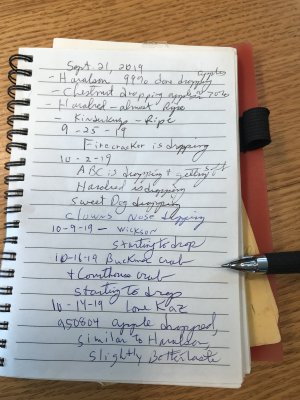 Sept. 21, 2019
- Haralson 99% done dropping apples
- Chestnut dropping apples 70%
- Haralred - almost Ripe
- Kinderkrisp - Ripe
9-25-19
Firecracker is dropping
10-2-19
ABC is dropping + getting soft
Haralred is dropping
Sweet Dog dropping
Clowns Nose dropping
10-9-19 - Wickson
starting to drop
10-16-19 Buckman crab
+ Courthouse crab
starting to drop
10-14-19 Lone Kaz
950804 apple dropped,
similar to Haralson,
slightly Better taste